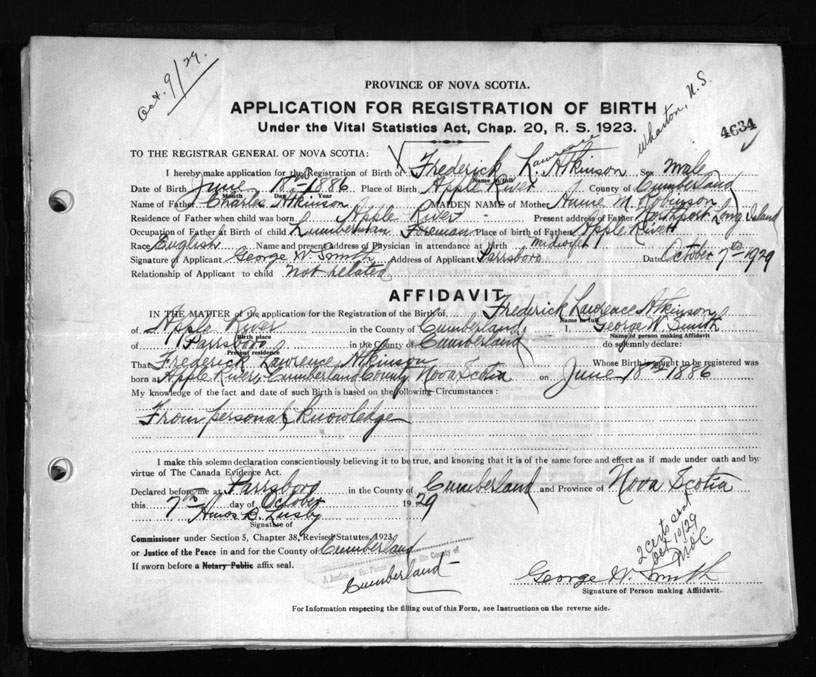 Oct. 9/29.
PROVINCE OF NOVA SCOTIA.
APPLICATION FOR REGISTRATION OF BIRTH
Under the Vital Statistics Act, Chap. 20, R. S. 1923.
Wharton, N. S.
4634
TO THE REGISTRAR GENERAL OF NOVA SCOTIA:
I hereby make application for the Registration of Birth of Frederick L. Atkinson Sex male
Lawrence
Name in full
Date of Birth June 18th 1886 Place of Birth Apple River County of Cumberland
Month Day Year
Name of Father Charles Atkinson MAIDEN NAME of Mother Annie M. Robinson
Residence of Father when child was born Apple River Present address of Father Long Island
Occupation of Father at Birth of child Lumberman Foreman Place of birth of Father Apple River
Race English Name and present Address of Physician in attendance at Birth midwife
Signature of Applicant George W Smith Address of Applicant Parrsboro Date October 7th 1929
Relationship of Applicant to child not related
AFFIDAVIT
IN THE MATTER of the application for the Registration of the Birth of Frederick Lawrence Atkinson
Name in full
of Apple River in the County of Cumberland, I, George W. Smith
Birth place Name of person making Affidavit
of Parrsboro in the County of Cumberland do solemnly declare:
Present residence
That Frederick Lawrence Atkinson Whose Birth is sought to be registered was
born at Apple River, Cumberland County Nova Scotia on June 18th 1886
My knowledge of the fact and date of such Birth is based on the following Circumstances:
From personal knowledge
I make this solemn declaration conscientiously believing it to be true, and knowing that it is of the same force and effect as if made under oath and by
virtue of The Canada Evidence Act.
Declared before me at Parrsboro in the County of Cumberland and Province of Nova Scotia
this 7th day of October 1929
Amos B. Lusby
Signature of
Commissioner under Section 5, Chapter 38, Revised Statutes, 1923
or Justice of the Peace in and for the County of Cumberland
A Justice of the Peace in and for the County of
If sworn before a Notary Public affix seal.
Cumberland
2 certs sent
Oct 10/29
George W. Smith
Signature of Person making Affidavit.
For Information respecting the filling out of this Form, see Instructions on the reverse side.